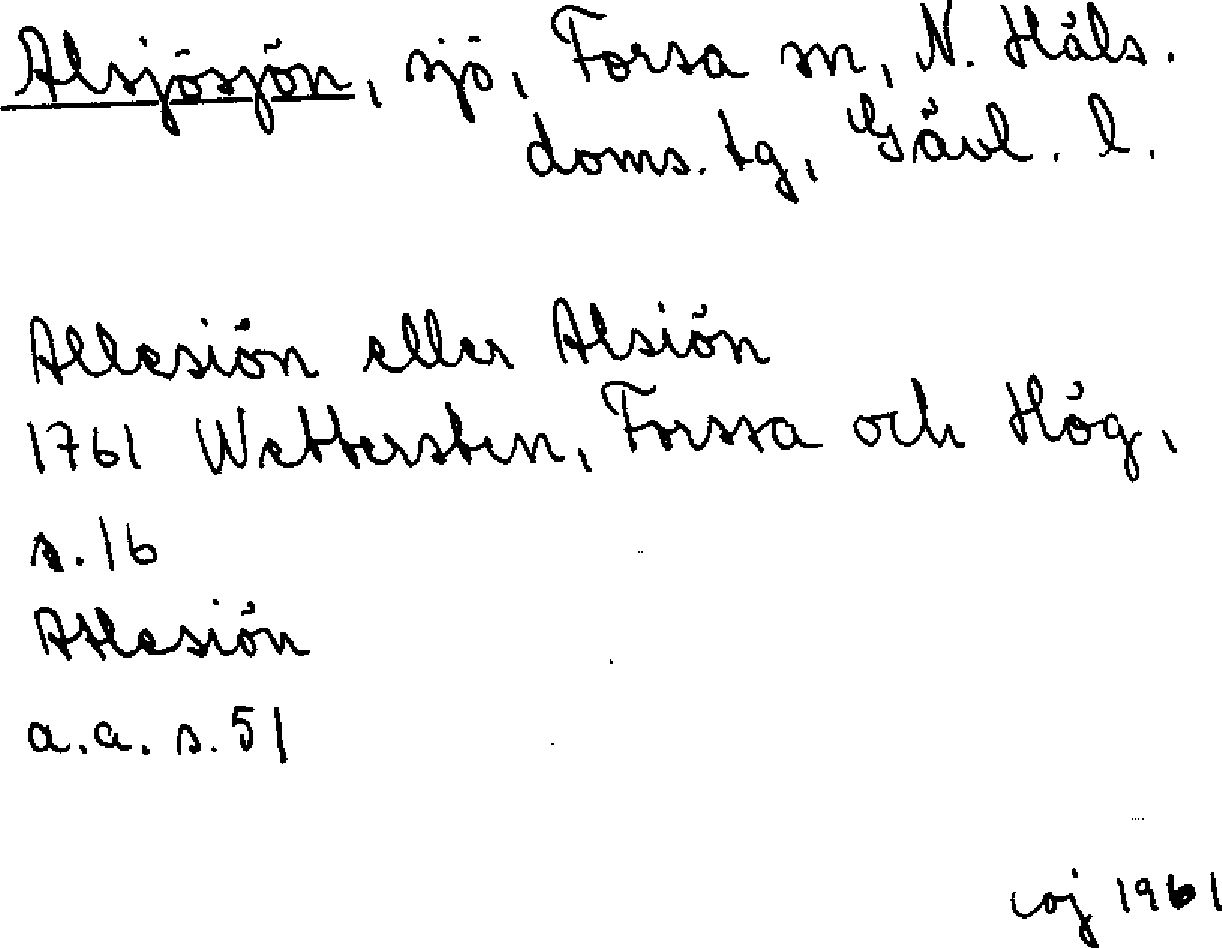 Alsjösjön, sjö, Forsa sn, N. Häls.
doms. tg, Gävl. l.
Allesiön eller Alsiön
1761 Wettersten, Forssa och Hög,
s. 16
Atlesiön
a.a. s. 51